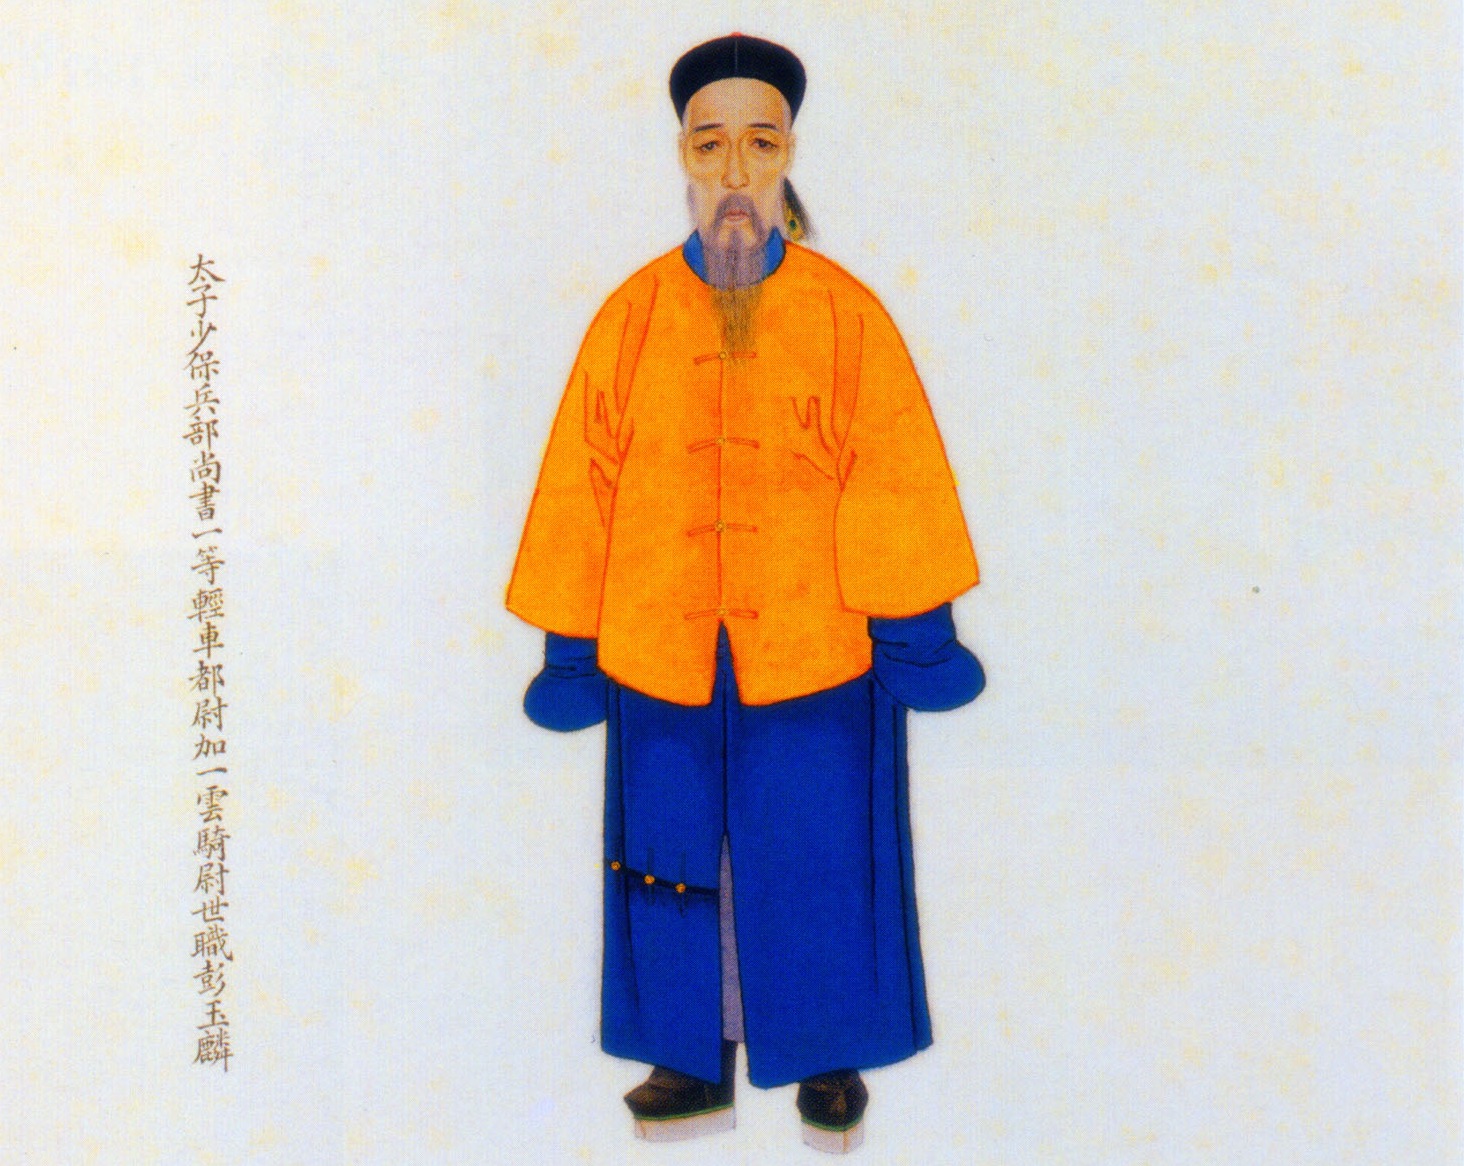 太子少保兵部尚書一等輕車都尉加一雲騎尉世職彭玉麟